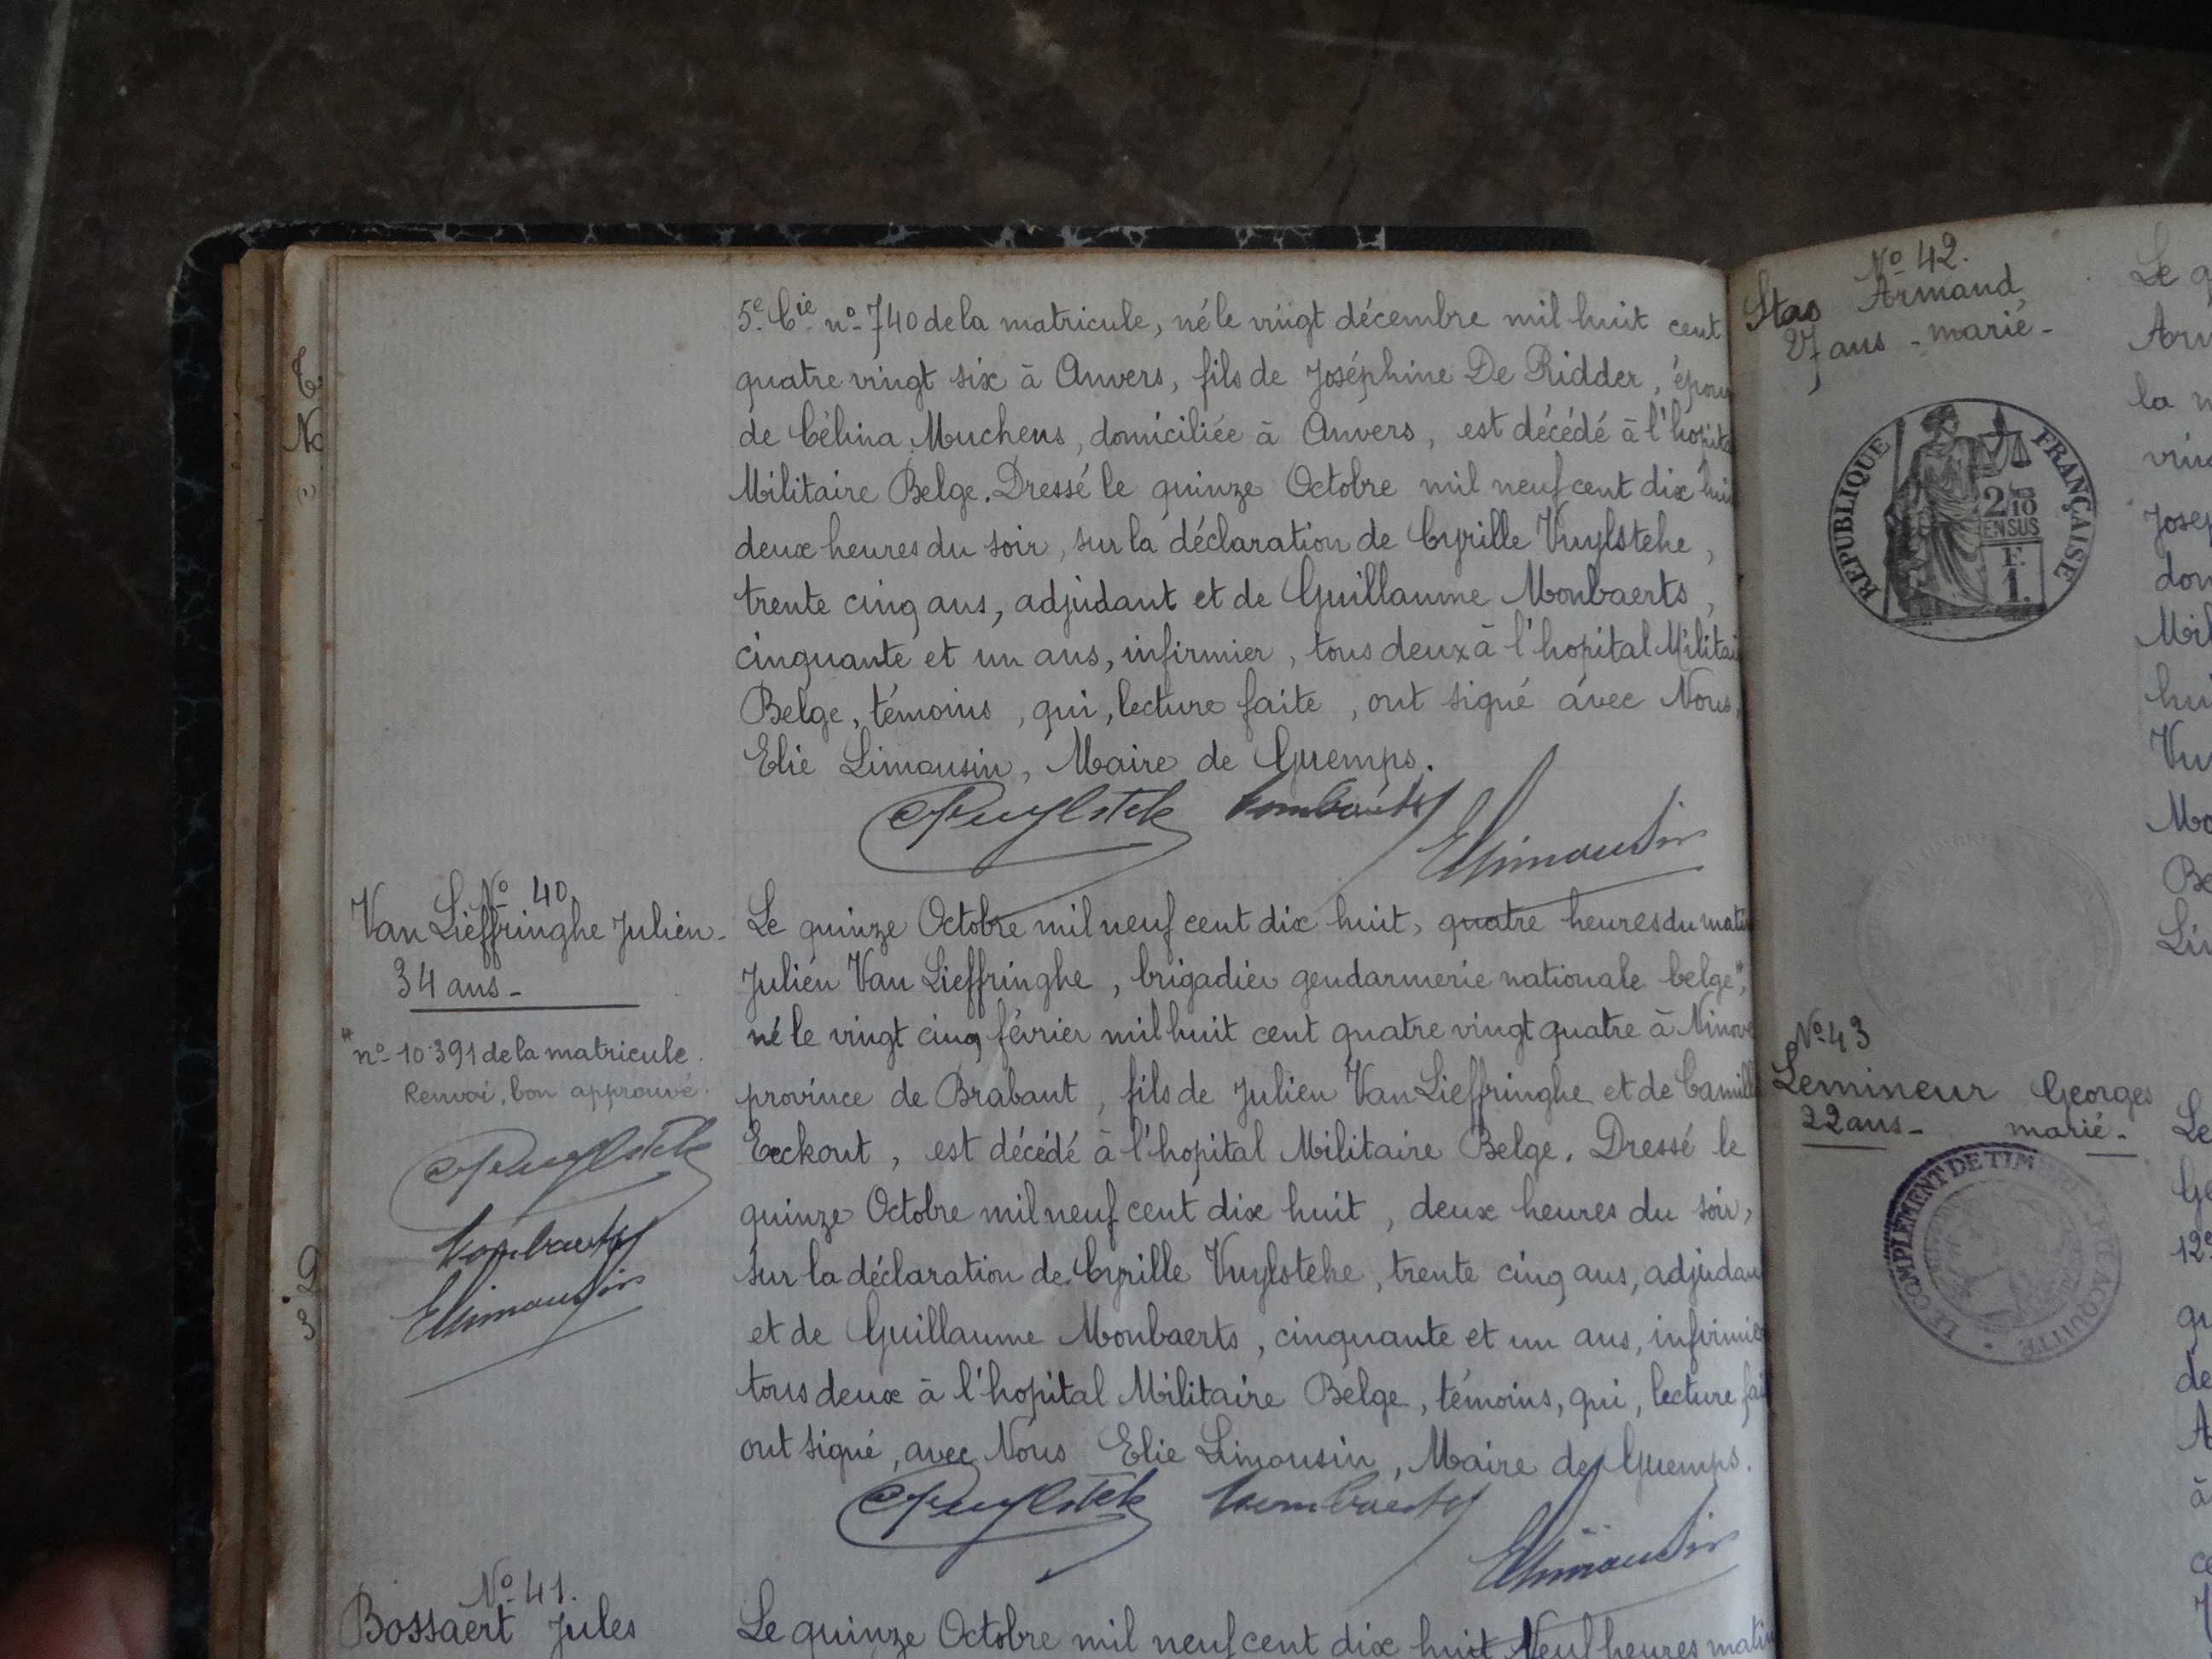 5e Cie no 740 de la matricule, né le vingt décembre mil huit cent
quatre vingt six à Anvers, fils de Joséphine De Ridder, épou
de Célina Muchens, domiciliée à Anvers, est décédé à l'hopita
Militaire Belge. Dressé le quinze Octobre mil neuf cent dix hui
deux heures du soir, sur la déclaration de Cyrille Vuylsteke,
trente cinq ans, adjudant et de Guillaume Monbaerts,
cinquante et un ans, infirmier, tous deux à l'hopital Militai
Belge, témoins, qui, lecture faite, ont signé avec Nous,
Elie Limousin, Maire de Guemps.
ELimousin
No 40
Van Lieffringhe Julien.
34 ans-
* no 10.391 de la matricule.
Renvoi, bon approuvé.
ELimousin
Le quinze Octobre mil neuf cent dix huit, quatre heures du matin
Julien Van Lieffringhe, brigadier gendarmerie nationale belge*,
né le vingt cinq février mil huit cent quatre vingt quatre à Ninove
province de Brabant, fils de Julien Van Lieffringhe et de Camille
Eeckout, est décédé à l'hopital Militaire Belge. Dressé le
quinze Octobre mil neuf cent dix huit, deux heures du soir,
sur la déclaration de Cyrille Vuylsteke, trente cinq ans, adjudan
et de Guillaume Monbaerts, cinquante et un ans, infirmier
tous deux à l'hopital Militaire Belge, témoins, qui, lecture fai
ont signé, avec Nous Elie Limousin, Maire de Guemps.
ELimousin
No 41.
Bossaert Jules
Le quinze Octobre mil neuf cent dix huit Neuf heures matin
No 42.
Stas Armand
27 ans - marié-
REPUBLIQUE FRANÇAISE
2/10
EN SUS
F.
1.
No 43
Lemineur Georges
22 ans- marié-
LE COMPLEMENT DE TIMBRE A ETE ACQUITTE
Le q
la m
Josep
dom
Mil
hui
Vu
Mo
Be
Li
Le
Ge
12e
qu
de
A
à